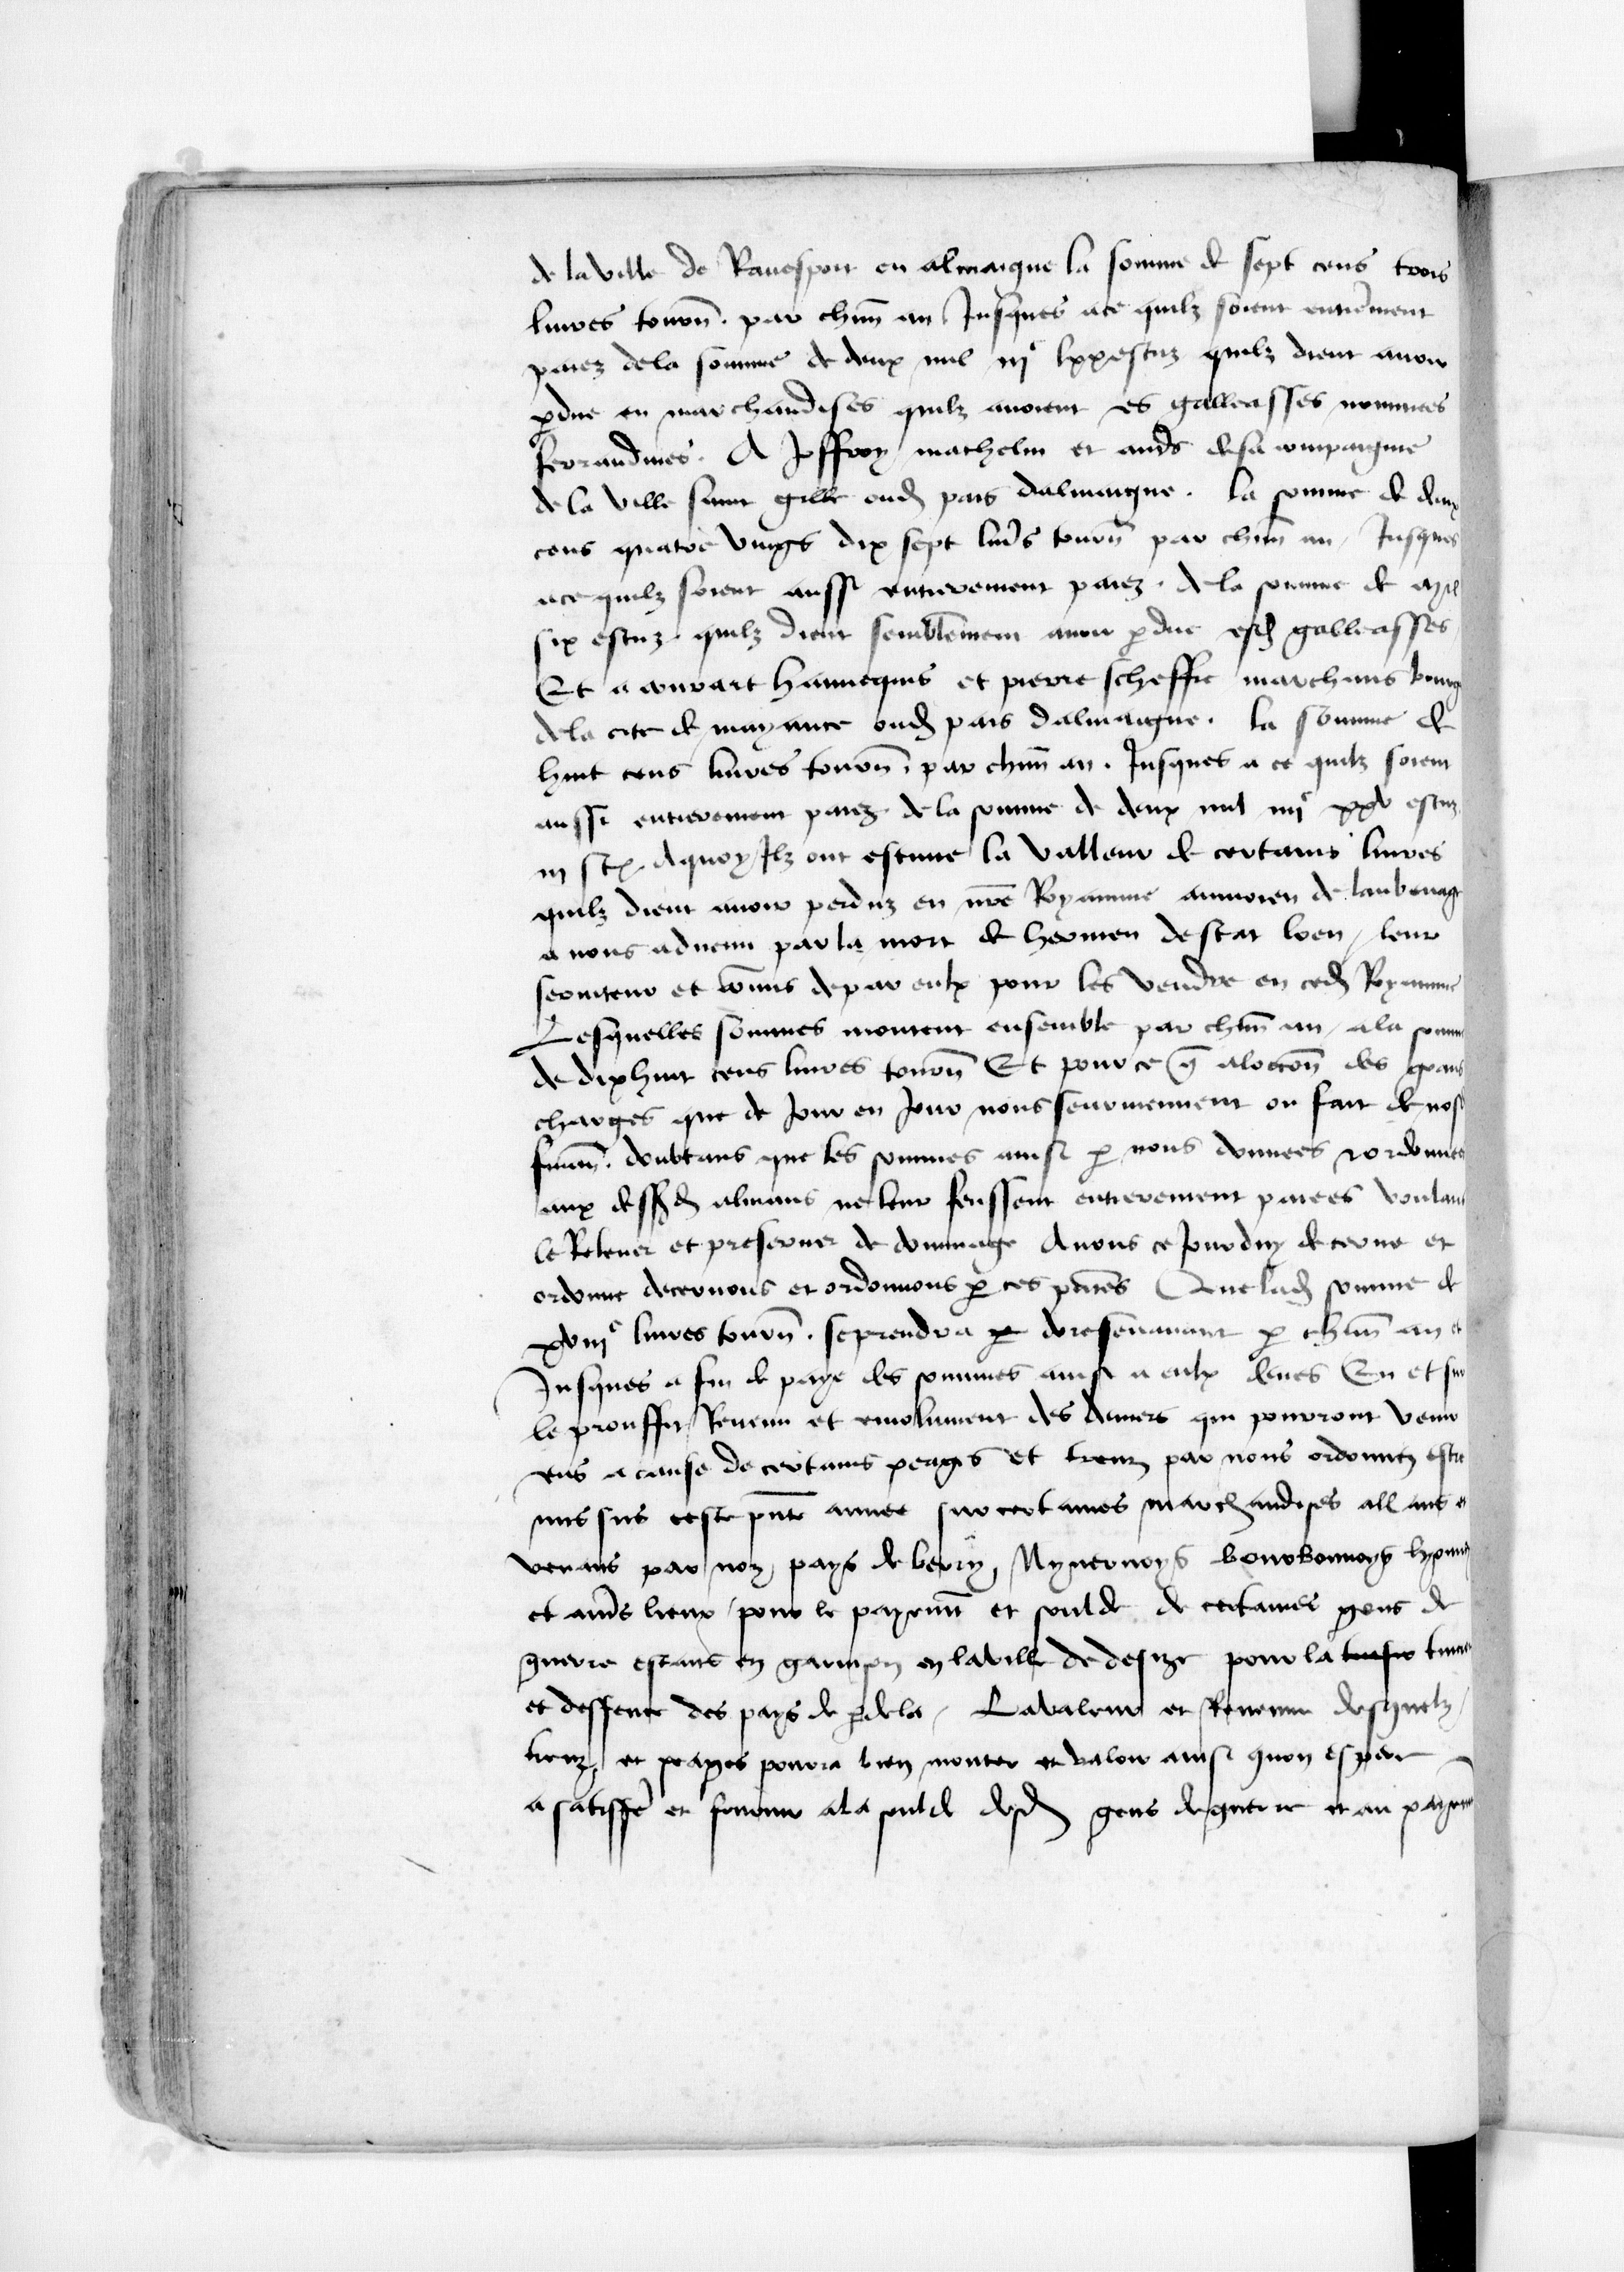 de la ville de Ravespour en almaigne la somme de sept cens trois
livres tourn̄. par chūn an Jusques ace quilz soient entieᵉment
paiez dela somme de deux mil iijᶜ lxx escuz quilz dient avoir
ꝑdue en marchandises quilz avoient es galleasses nommees
ferrandines. A Joffroy mathelin et auāˢ de sa compaignie
de la ville saint gille oudꝭ pais dalmaigne. la somme de deux
cens quatre vings dix sept livrˢ tourn̄ par chūn an Jusques
ace quilz soient aussi entierement paiez. de la somme de mil
six escuz. quilz dient semblēment avoir ꝑdue esdꝭ galleasses
Et a conrart hannequis et pierre scheffre marchans bourg
dela cite de mayance oudꝭ pais dalmaigne. la somme de
huit cens livres tourn̄. par chūn an. Jusques a ce quilz soient
aussi entierement paiez. de la somme de deux mil iiijᶜ xxv escuz
iij s tꝭ. Aquoy Ilz ont estime la valleur de certains livres
quilz dient avoir perduz en nrē Royaume aumoien de laubenage
a nous advenu par la mort de hermen de stat boen, leur
serviteur et cōmis depar eulx pour les vendre en cedꝭ Royaume
Lesquelles sommes montent ensemble par chūn an ala somme
de dixhuit cens livres tourn̄ Et pour ce q̄ aloccōn des grans
charges que de Jour en Jour nous seurviennent ou fait de nosd
finan̄. doubtans que les sommes ainsi ꝑ nous donnees & ordonnees
aux dessusdꝭ almans ne leur feussent entierement paiees voulans
le Relever et preserver de dommage Avons ce Jourduy decerne et
ordonne decernons et ordonnons ꝑ ces pn̄tes Que ladꝭ somme de
xviijᶜ livres tourn̄. seprendra ꝑ doresenavant ꝑ chūn an et
Jusques a fin de paye des sommes ainsi a eulx deues En et sur
le prouffit Revenu et emolument des deniers qui pourront venir
ens a cause de certains peages et treuz par nous ordonnez estre
mis sus ceste pn̄te annee sur certaines marchandises allans et
venans par noz pays de berry, Nyvernoys bourbonnoys lyonnoys
et auāˢ lieux pour le payemn̄t et soulde de certaines gens de
guerre estans en garnison en laville dedesize pour la tuicion
et deffence des pays de ꝑdela. Lavaleur et Revenue desquelz
treuz, et peages pourra bien monter et valoir ainsi quon espere
a satisffeʳ et fournir ala soulde desdꝭ gens deguerre et au payement